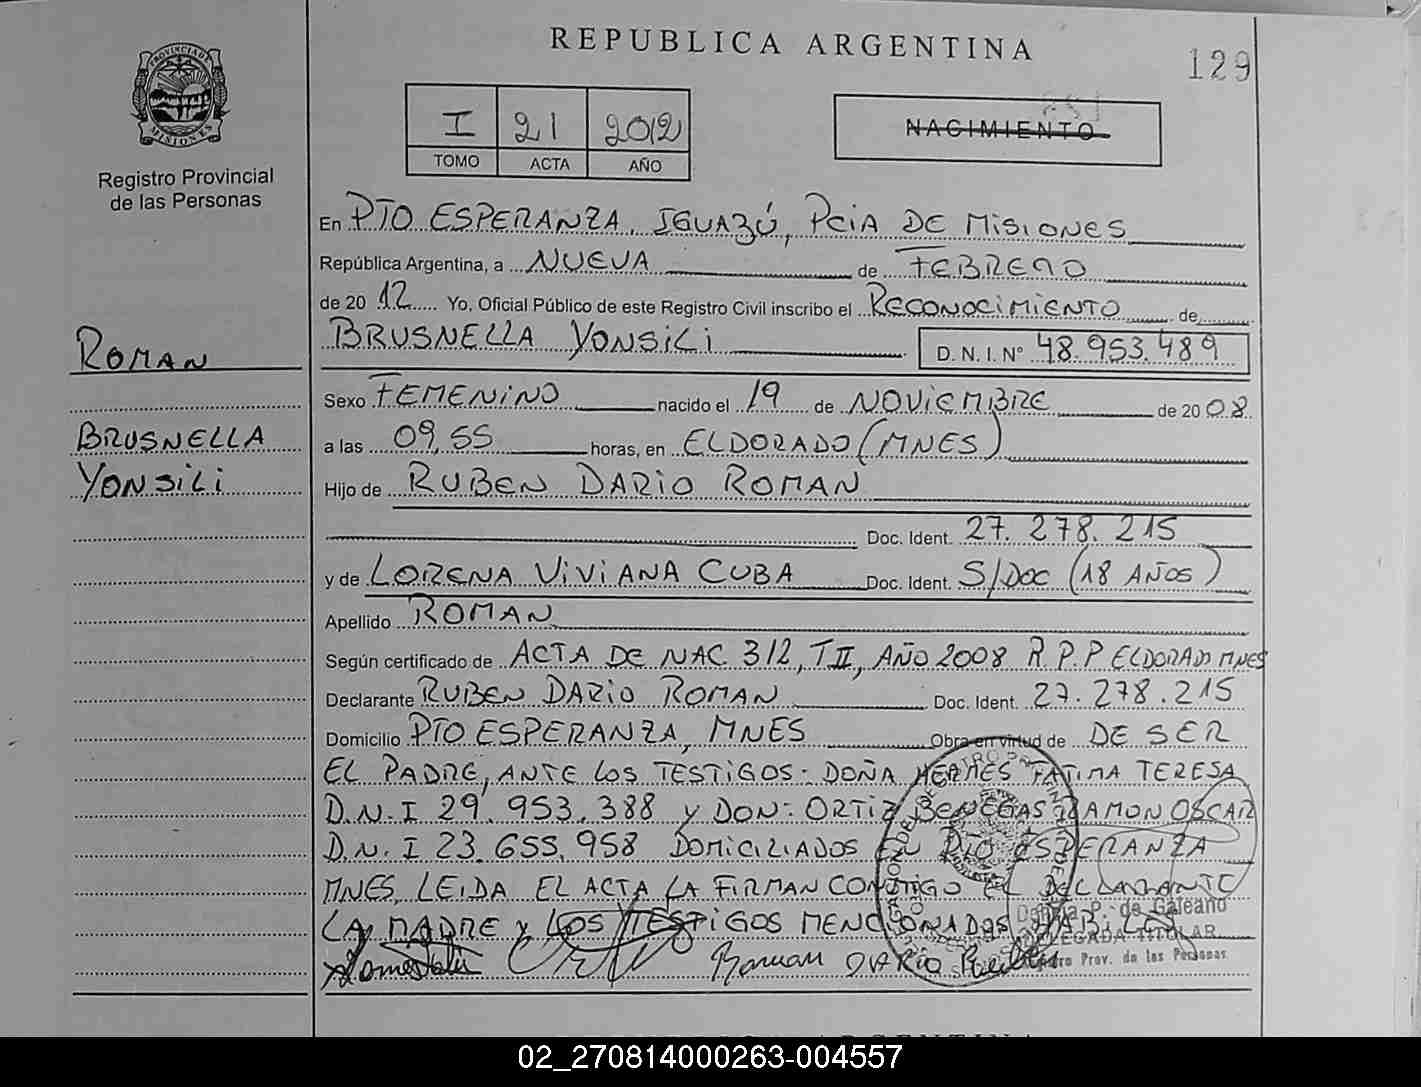 REPUBLICA ARGENTINA
129
PROVINCIA DE
MISIONES
Registro Provincial
de las Personas
I 21 2012
TOMO ACTA AÑO
NACIMIENTO
En PTO ESPERANZA, IGUAZÚ, PCIA DE MISIONES
República Argentina, a NUEVA de FEBRERO
de 2012 Yo, Oficial Público de este Registro Civil inscribo el RECONOCIMIENTO de
BRUSNELLA YONSILI D. N. I. Nº 48.953.489
ROMAN
BRUSNELLA
YONSILI
Sexo FEMENINO nacido el 19 de NOVIEMBRE de 2008
a las 09,55 horas, en ELDORADO (MNES)
Hijo de RUBEN DARIO ROMAN
Doc. Ident. 27.278.215
y de LORENA VIVIANA CUBA Doc. Ident. S/DOC (18 AÑOS)
Apellido ROMAN
Según certificado de ACTA DE NAC 312, T II, AÑO 2008 R.P.P ELDORADO MNES
Declarante RUBEN DARIO ROMAN Doc. Ident. 27.278.215
Domicilio PTO ESPERANZA, MNES Obra en virtud de DE SER
EL PADRE, ANTE LOS TESTIGOS: DOÑA HERMES FATIMA TERESA
D.N.I 29.953.388 y DON: ORTIZ BENEGAS RAMON OSCAR
D.N.I 23.655.958 DOMICILIADOS EN PTO ESPERANZA
MNES, LEIDA EL ACTA LA FIRMAN CONMIGO EL DECLARANTE
LA MADRE y LOS TESTIGOS MENCIONADOS
P. de Galeano
DELEGADA TITULAR
Prov. de las Personas
Roman DARIO Ruben
02_270814000263-004557